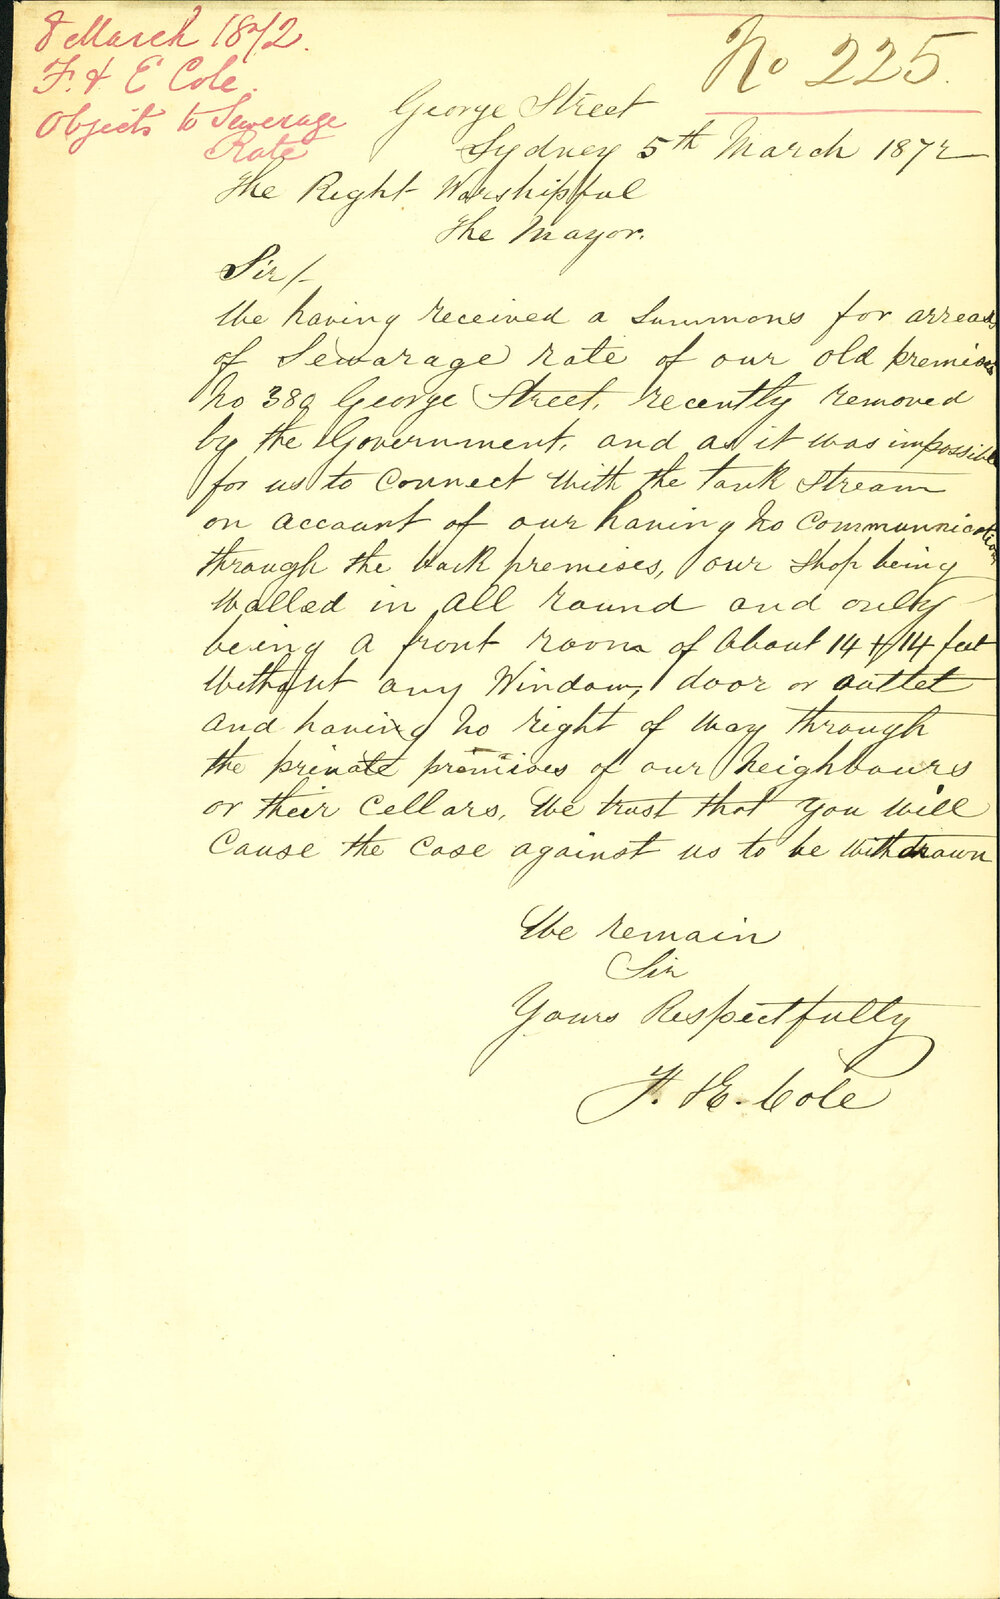 8 March 1872.
F. & E Cole.
Objects to Sewerage
Rate
No 225.
George Street
Sydney 5th March 1872
The Right Worshipful
The Mayor.
Sir/-
We having received a Summons for arrears
of Sewarage rate of our old premises
No 389 George Street, recently removed
by the Government, and as it was impossible
for us to Connect with the tank Stream
on account of our having no Communnication
through the back premises, our Shop being
walled in all round and only
being a front room of about 14 + 14 feet
without any Window, door or outlet
and having no right of way through
the private premises of our neighbours
or their Cellars, We trust that you will
Cause the Case against us to be withdrawn
We remain
Sir
Yours Respectfully
F. & E. Cole